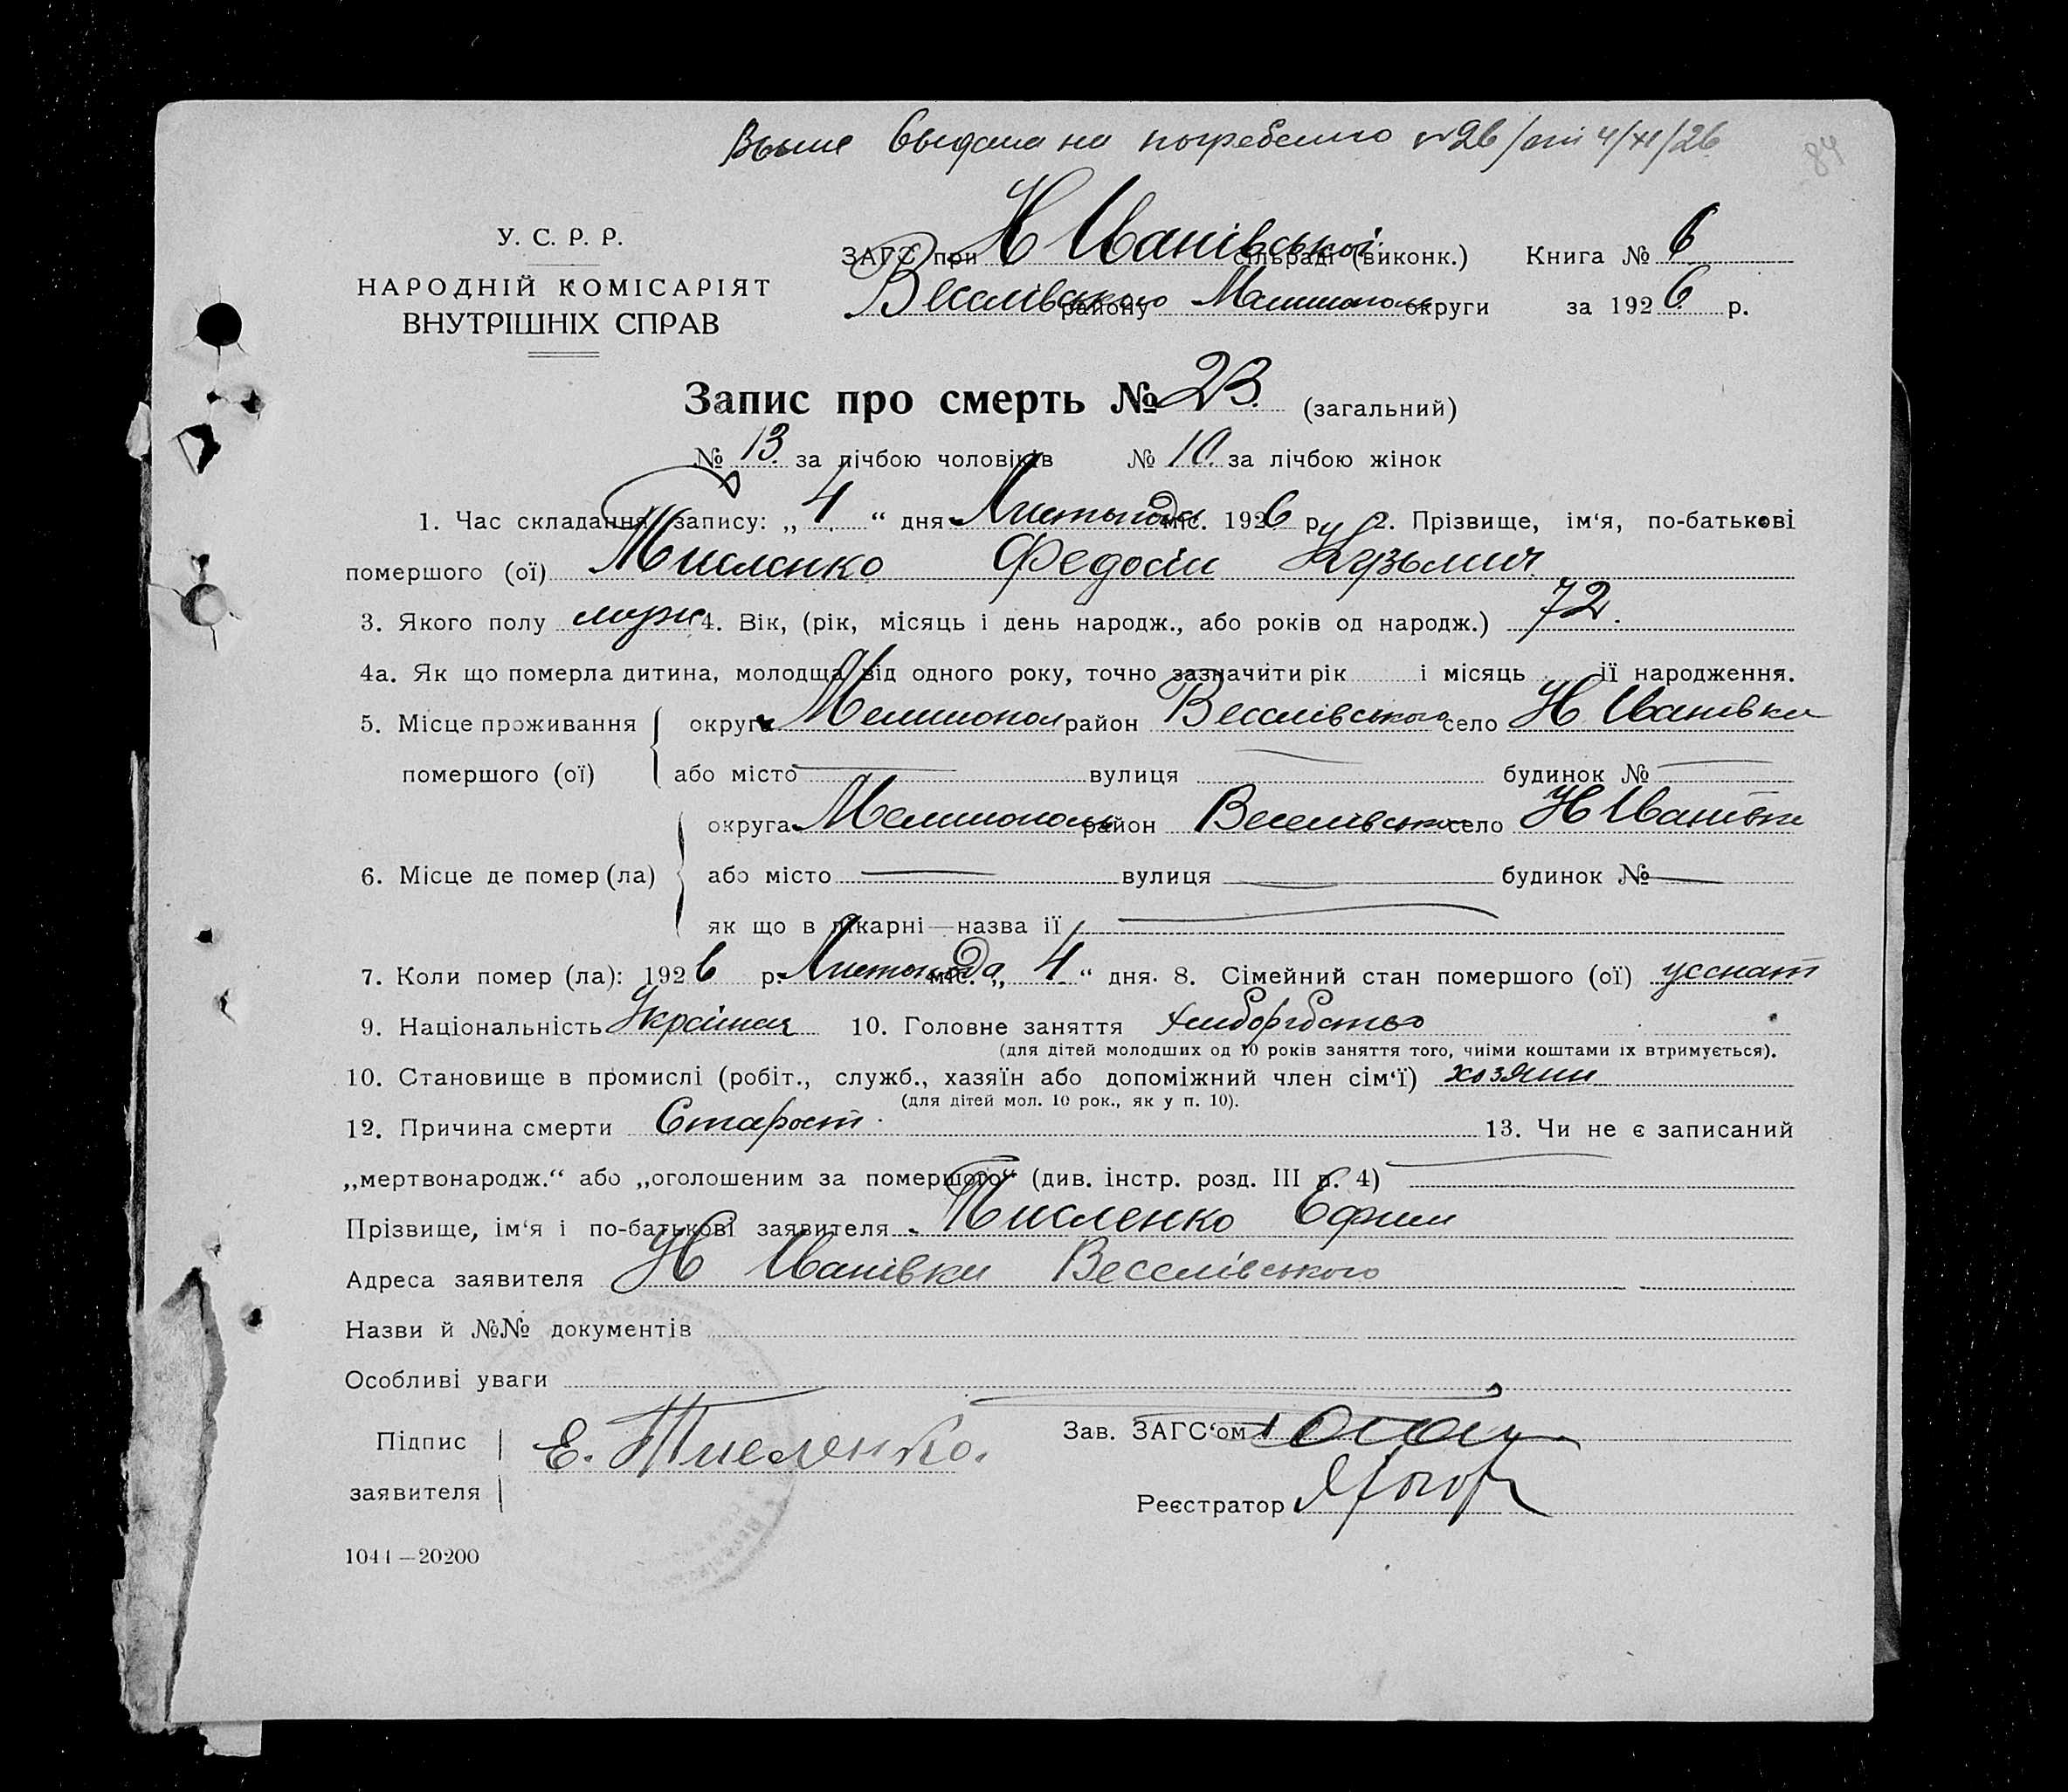 выдана на погребение №26/от 4/XI/26
84
У. С. Р. Р.
НАРОДНІЙ КОМІСАРІЯТ
ВНУТРІШНІХ СПРАВ
ЗАГС при Н Иванівської сільраді (виконк.) Книга № 6
Веселівського району Мелитополь округи за 1926 р.
Запис про смерть № 23. (загальний)
№ 13. за лічбою чоловіків № 10. за лічбою жінок
1. Час складання запису: „ 4 “ дня Листопада міс. 1926 р. 2. Прізвище, ім‘я, по-батькові
помершого (ої) Тисленко Федосій Кузьмич
3. Якого полу муж 4. Вік, (рік, місяць і день народж., або років од народж.) 72.
4а. Як що померла дитина, молодща від одного року, точно зазначити рік і місяць ії народження.
5. Місце проживання округа Мелитопол район Веселівського село Н Иванівки
помершого (ої) або місто вулиця будинок №
округа Мелитополь район Веселівського село Н Иванівки
6. Місце де помер (ла) або місто вулиця будинок №
як що в лікарні—назва ії
7. Коли помер (ла): 1926 р. Листопада міс. „ 4 “ дня. 8. Сімейний стан помершого (ої)
9. Національність 10. Головне заняття
(для дітей молодших од 10 років заняття того, чиїми коштами їх втримується).
10. Становище в промислі (робіт., служб., хазяїн або допоміжний член сім‘ї) хозяин
(для дітей мол. 10 рок., як у п. 10).
12. Причина смерти Старост 13. Чи не є записаний
„мертвонародж.“ або „оголошеним за помершого“ (див. інстр. розд. III п. 4)
Прізвище, ім‘я і по-батькові заявителя Тисленко Ефим
Адреса заявителя Н Иванівки Веселівського
Назви й №№ документів
Особливі уваги
Підпис заявителя Е. Тисленко.
Зав. ЗАГС‘ом
Реєстратор
1044—20200